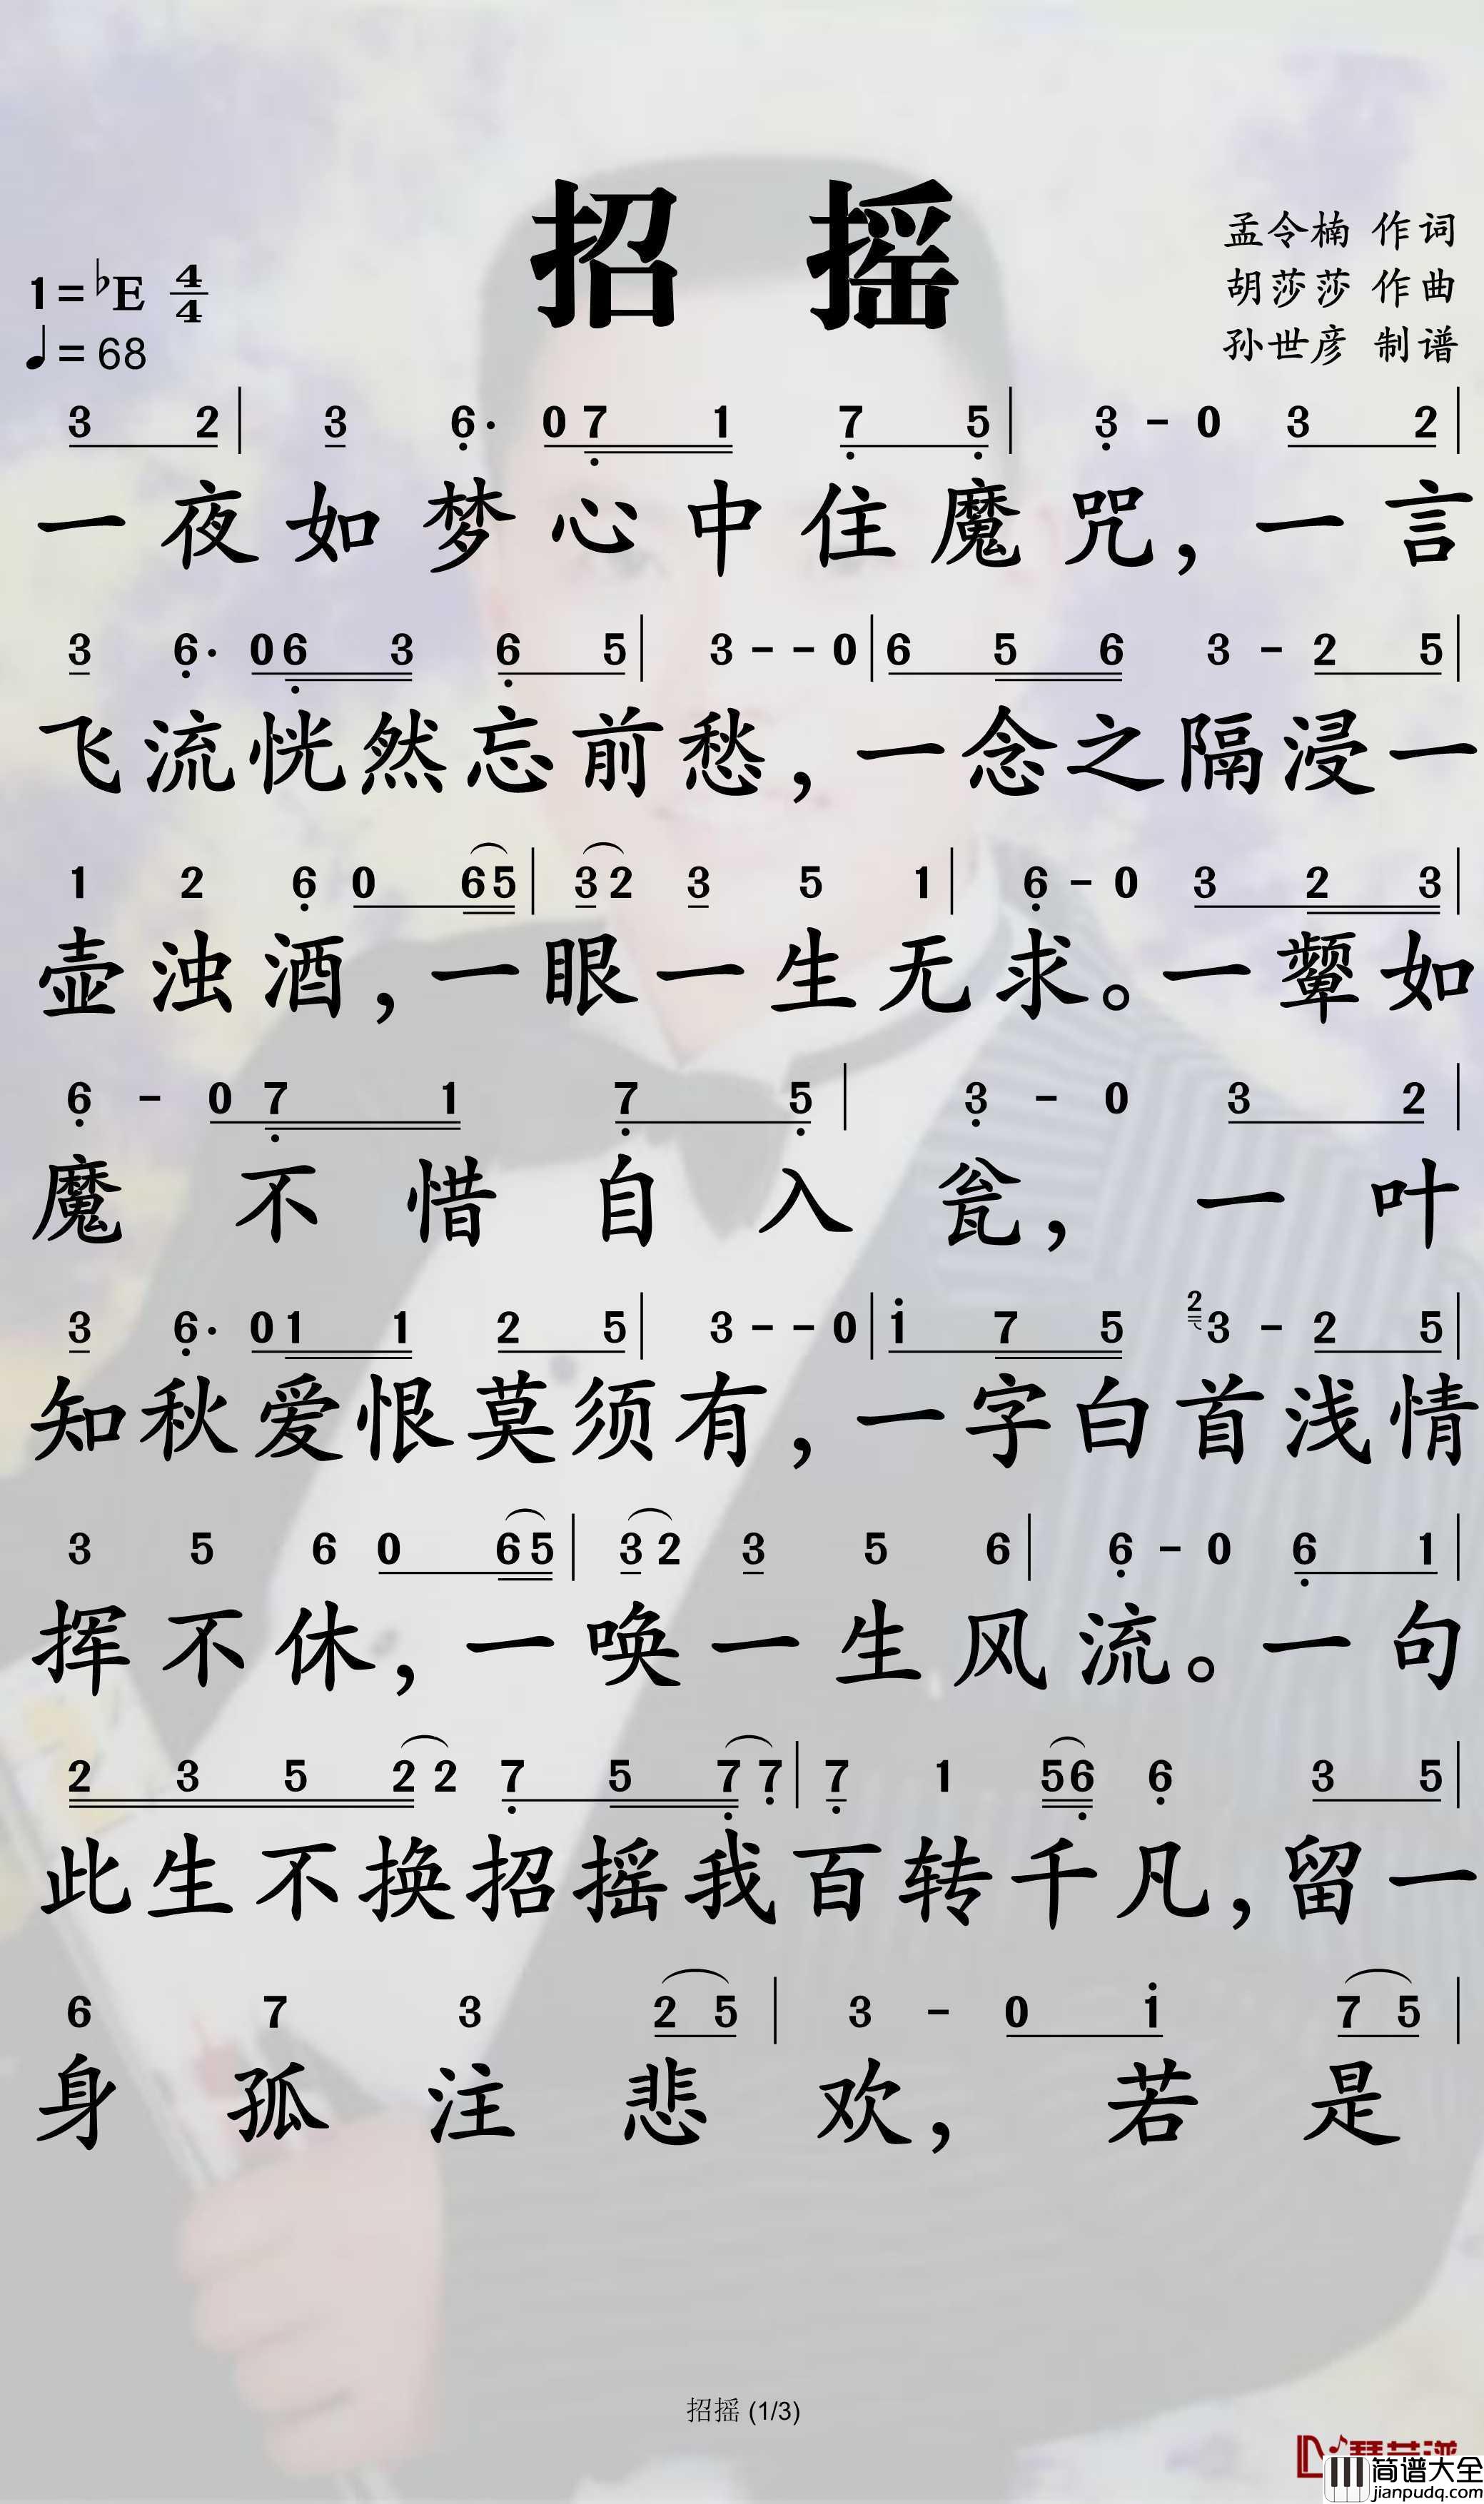 招摇
孟令楠 作词
胡莎莎 作曲
孙世彦 制谱
1=♭E 4/4
♩=68
3 2 | 3 6· 0 7 1 7 5 | 3 - 0 3 2 |
一夜如梦心中住魔咒，一言
3 6· 0 6 3 6 5 | 3 - - 0 | 6 5 6 3 - 2 5 |
飞流恍然忘前愁，一念之隔浸一
1 2 6 0 6 5 | 3 2 3 5 1 | 6 - 0 3 2 3 |
壶浊酒，一眼一生无求。一颦如
6 - 0 7 1 7 5 | 3 - 0 3 2 |
魔不惜自入瓮，一叶
3 6· 0 1 1 2 5 | 3 - - 0 | i 7 5 2 3 - 2 5 |
知秋爱恨莫须有，一字白首浅情
3 5 6 0 6 5 | 3 2 3 5 6 | 6 - 0 6 1 |
挥不休，一唤一生风流。一句
2 3 5 2 2 7 5 7 7 | 7 1 5 6 6 3 5 |
此生不换招摇我百转千凡，留一
6 7 3 2 5 | 3 - 0 i 7 5 |
身孤注悲欢，若是
招摇 (1/3)
简谱大全
jianpudq.com